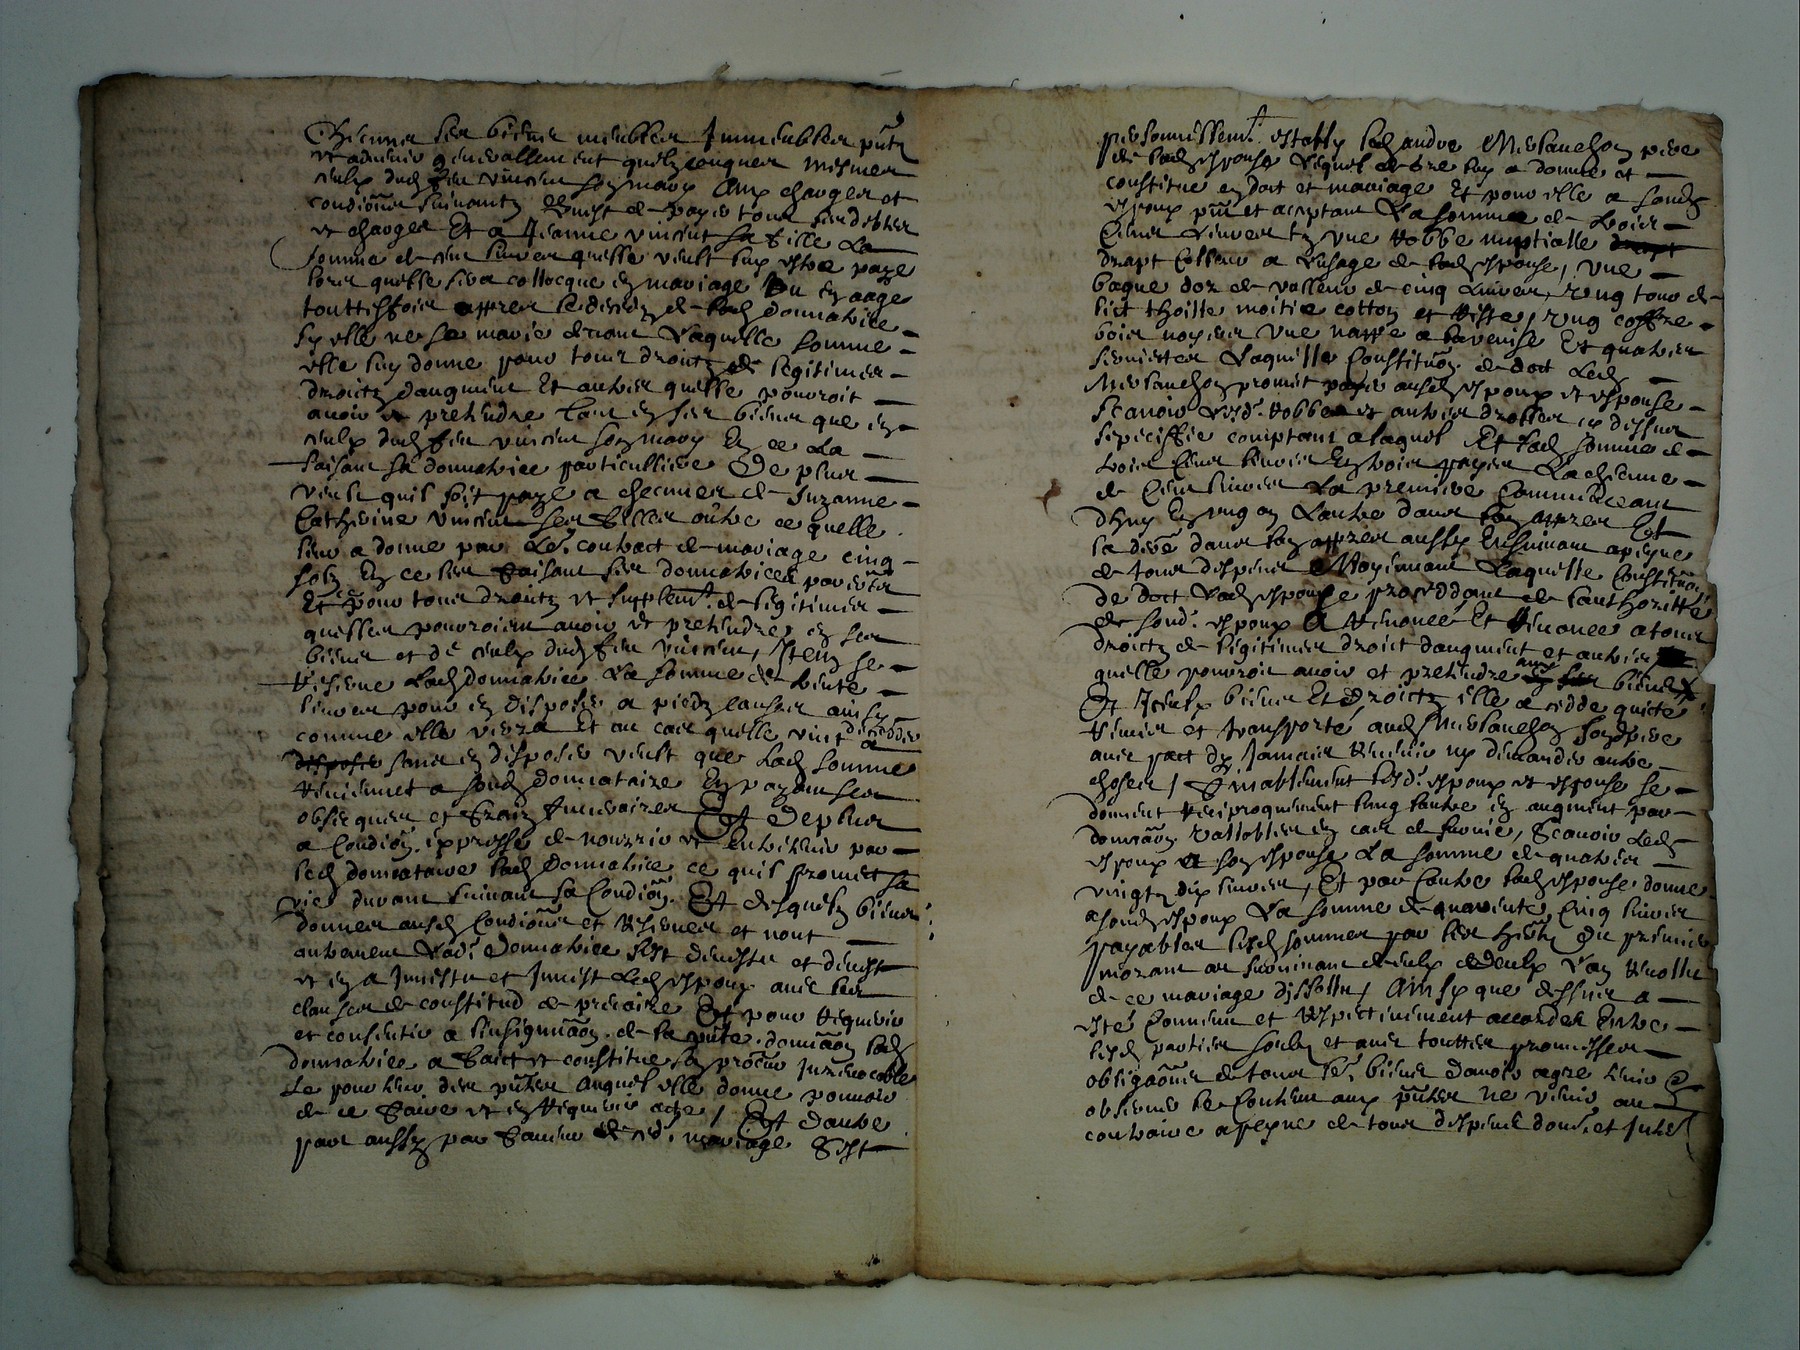 biens meubles Immeubles pntz
et advenir generallement quelzconques mesmes
ceulx dud feu vincens son mary Aux charges et
condiōns suivantz de payer tous ses debtes
et charges Et a Jeanne vincens sa fille La
somme de cens livres quelle veult luy estre paye
lors quelle sera collocquee en mariage Ou en aage
touttesfois appres le deceds de lad donnatrice
sy elle ne se marie devant Laquelle somme
elle luy donne pour tous droictz de legitimes
droictz daugment Et autres quelle pouvroit
avoir et pretendre tant en ses biens que en
ceulx dud feu vincens son mary En ce La
faisant sa donnatrice particulliere De plus
veult quil soit paye a checunes de Suzanne
Catherine vincens ses filles oultre ce quelle
leur a donne par le contract de mariage cinq
solz En ce les faisant ses donnatrices
Et pour tous droictz et supplemt de legitimes
quelles pouvroient avoir et pretendre en ses
biens et de ceulx dud feu vincens, Item se
reserve Lad donnatrice La somme de trente
livres pour en disposer a piedz causes ainsy
comme elle verra Et au cas quelle vint a deceder
sans en disposer veult que Lad somme
reviennet a sond donnataire En payant ses
obseques et fraiz funeraires Et de plus
a Condiōn expresse de nourrir et Entretenir par
led donnataire lad donnatrice ce quil promet sa
vie durant suivant sa Condiōn Et desquelz biens
donnes ausd Condiōns et reserves et nont
autrement Lad donnatrice sest devestu et devest
et en a Investu et Invest Led espoux avec les
clauses de constitud de precaire Et pour requerir
et consentir a linsignuāōn de la pnte donnāōn lad
donnatrice a faict et constitue son procur Irrevocable
Le pour leur des pntes Auquel elle donne pouvoir
de ce faire et en requerir acte / Et dautre
part aussy par faveur de ced mariage Sest
personnellemt estably led andre Meslanchon pere
de lad espouse Lequel de gre luy a donne et
constitue en dot et mariage Et pour elle a sond
espoux pnt et aceptant La somme de trois
Cens livres tz une robbe nuptialle
drapt colleur a lusage de lad espouse, une
bague dor de valleur de cinq Livres, ung tour de
lict thoille moitie cotton et, ung coffre
bois noyer une nappe a la venise Et quatre
serviettes Laquelle Constituōn de dot Led
Meslanchon promet payer ausd espoux et espouse
scavoir lesd robbe et autres dorres cy dessus
specifie comptant alaquel Et lad somme de
trois Cens livres En trois payes La chesune
de Cens livres La premiere Commenceant
dhuy En ung an Lautre dans appres Et
la dre dans ung appres aussy Ensuivant apeyne
de tous despens Moyenant Laquelle Constituōn
de dot Lad espouse proceddant de lauthoritté
de sond espoux A renoncé Et renonce a tous
droictz de legitimes droict daugment et autres
quelle pouvroit avoir et pretendre aux biens
Et Iceulx biens Et droictz elle a cedde quicte
remis et transporté aud Meslanchon son pere
avec pact dy Jamais revenir ny demander autre
choses / Finablement lesd espoux et espouse se
donnent reciproquement lung lautre en augment par
donnāōn vallable en cas de survie, Scavoir Led
espoux a son espouse La somme de quatre
vingtz dix livres, Et par Contre lad espouse donne
a sond espoux La somme de quarente Cinq livres
payables lesd sommes par les hers du premier
morant au survivant de eulx deulx Lan revollu
de ce mariage dissollu, Ainsy que dessus a
esté Convenu et respectivement accordes Entre
lesd parties soubz et avec touttes promesses
obligaōns de tous les biens davoir agre tenir
observer le Contenu aux pntes ne venir au
contraire a peyne de tous despens dom. et Inte